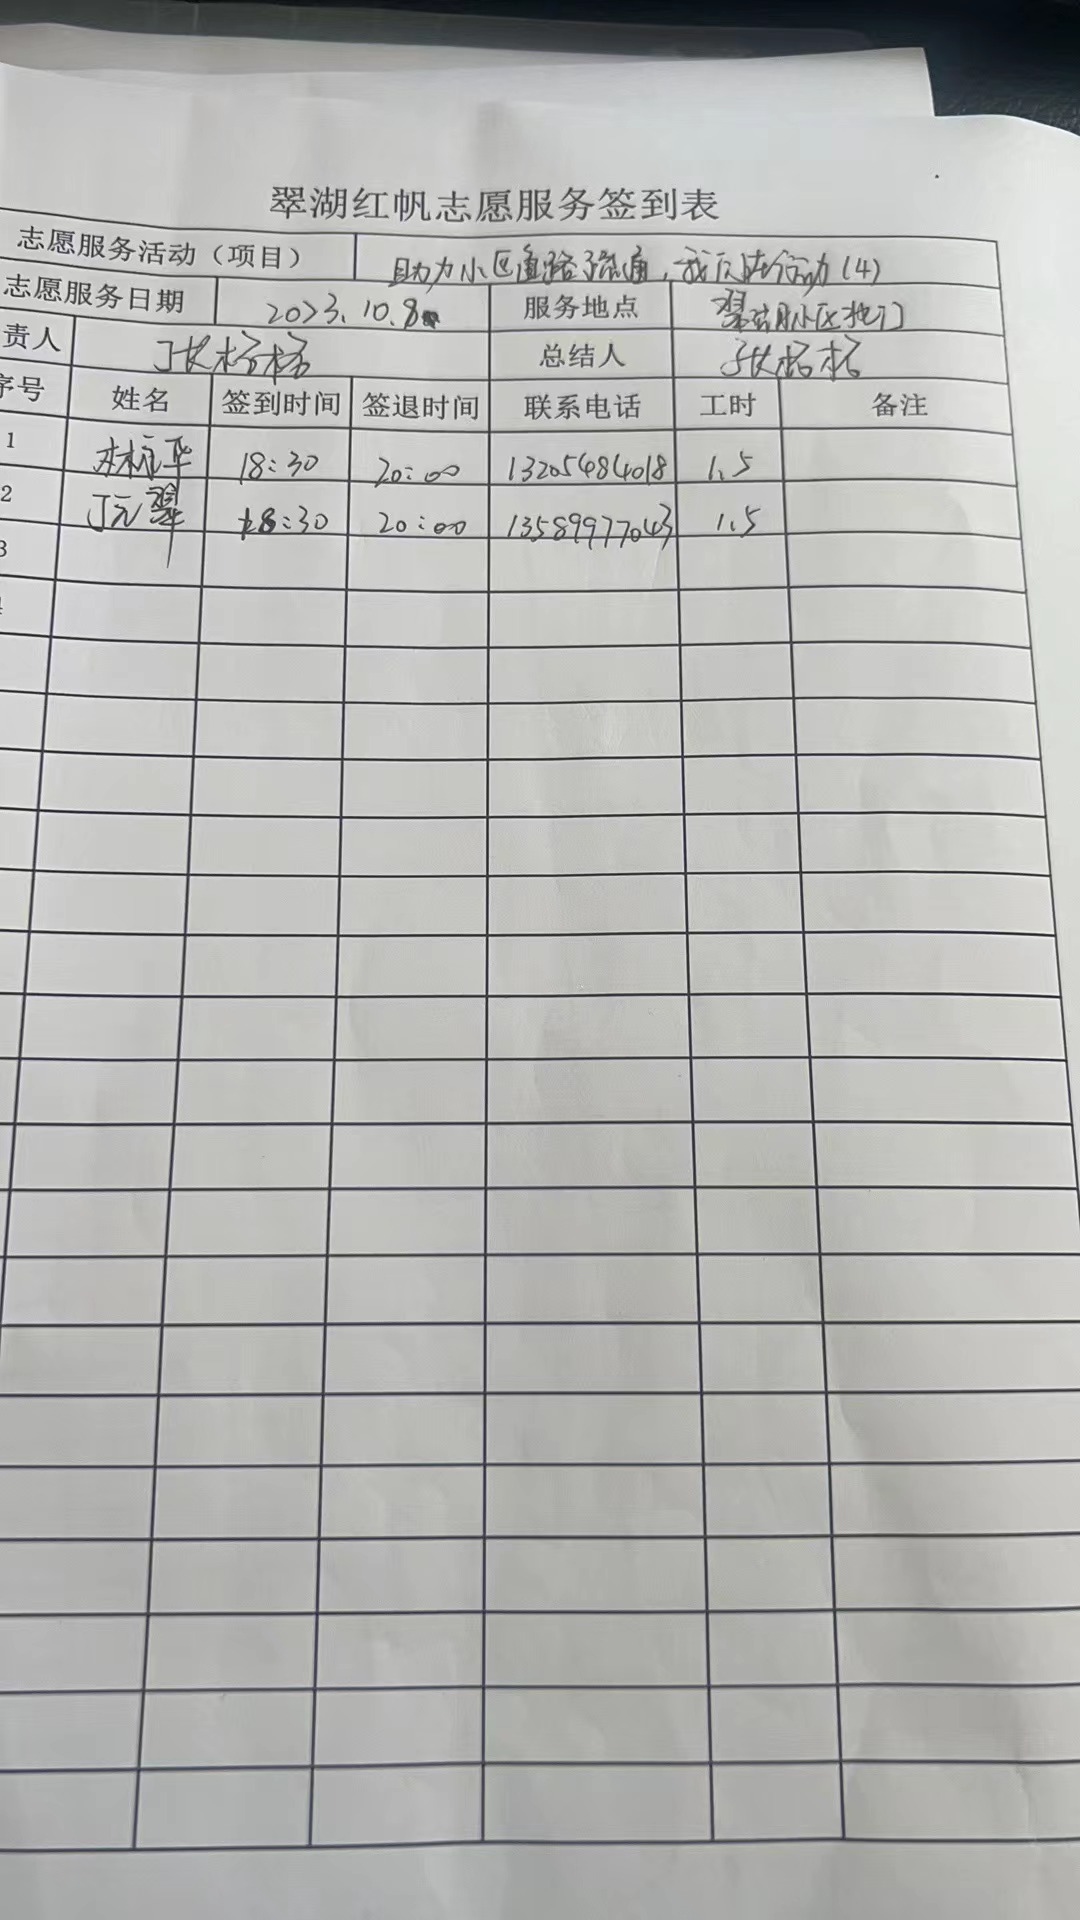 翠湖红帆志愿服务签到表
志愿服务活动（项目） 助力小区道路疏通，我们在行动(4)
志愿服务日期 2023.10.8 服务地点 小区北门
责人 张格格 总结人 张格格
序号 姓名 签到时间 签退时间 联系电话 工时 备注
1 华 18:30 20:00 13205484018 1.5
2 丁元翠 18:30 20:00 13589977043 1.5
3
4